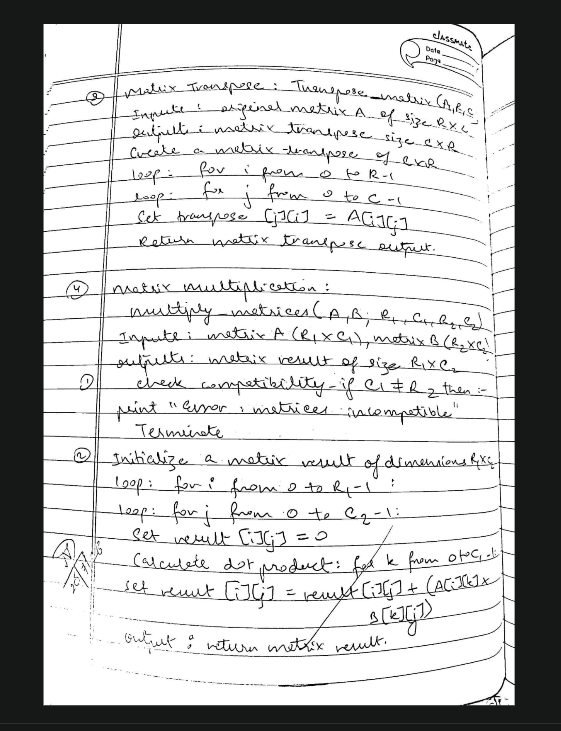 classmate
Date
Page
③ Matrix Transpose : Transpose_matrix (A,R,C
Inputs : original matrix A of size R×C
outputs : matrix transpose size C×R
Create a matrix transpose of C×R
loop : for i from 0 to R-1
loop : for j from 0 to C-1
Set transpose [j][i] = A[i][j]
Return matrix transpose output.
④ matrix multiplication :
multiply_matrices (A, B, R1, C1, R2, C2)
Inputs : matrix A (R1×C1), matrix B (R2×C2)
outputs : matrix result of size R1×C2
① check compatibility - if C1 ≠ R2 then :-
print "Error : matrices incompatible"
Terminate
② Initialize a matrix result of dimensions R1×C2
loop : for i from 0 to R1-1 :
loop : for j from 0 to C2-1 :
Set result [i][j] = 0
Calculate dot product : for k from 0 to C1-1
set result [i][j] = result [i][j] + (A[i][k] ×
B[k][j])
output : return matrix result.